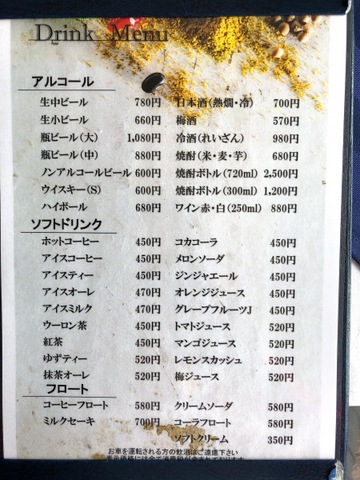 Drink Menu
アルコール
生中ビール 780円 日本酒(熱燗・冷) 700円
生小ビール 660円 梅酒 570円
瓶ビール(大) 1,080円 冷酒(れいざん) 980円
瓶ビール(中) 880円 焼酎(米・麦・芋) 680円
ノンアルコールビール 600円 焼酎ボトル(720ml) 2,500円
ウイスキー(S) 600円 焼酎ボトル(300ml) 1,200円
ハイボール 680円 ワイン赤・白(250ml) 880円
ソフトドリンク
ホットコーヒー 450円 コカコーラ 450円
アイスコーヒー 450円 メロンソーダ 450円
アイスティー 450円 ジンジャエール 450円
アイスオーレ 470円 オレンジジュース 450円
アイスミルク 470円 グレープフルーツJ 450円
ウーロン茶 450円 トマトジュース 520円
紅茶 450円 マンゴジュース 520円
ゆずティー 520円 レモンスカッシュ 520円
抹茶オーレ 520円 梅ジュース 520円
フロート
コーヒーフロート 580円 クリームソーダ 580円
ミルクセーキ 700円 コーラフロート 580円
ソフトクリーム 350円
お車を運転される方の飲酒はご遠慮下さい